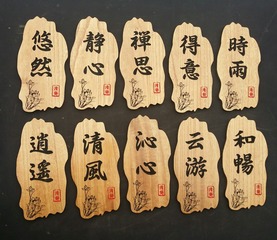 悠然
静心
禅思
得意
時雨
逍遥
清風
沁心
云游
和暢